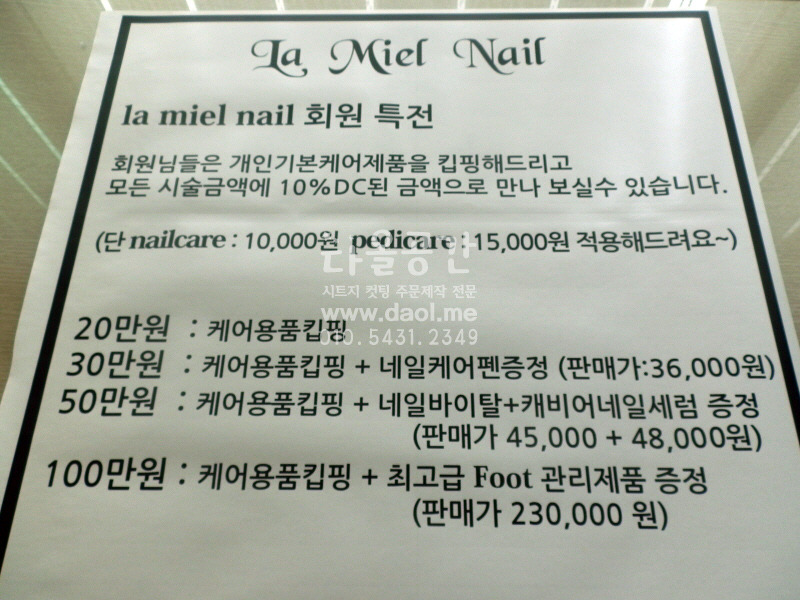 La Miel Nail
la miel nail 회원 특전
회원님들은 개인기본케어제품을 킵핑해드리고
모든 시술금액에 10%DC된 금액으로 만나 보실수 있습니다.
(단 nailcare : 10,000원 pedicare : 15,000원 적용해드려요~)
다올공간
시트지 컷팅 주문제작 전문
www.daol.me
010.5431.2349
20만원 : 케어용품킵핑
30만원 : 케어용품킵핑 + 네일케어펜증정 (판매가:36,000원)
50만원 : 케어용품킵핑 + 네일바이탈+캐비어네일세럼 증정
(판매가 45,000 + 48,000원)
100만원 : 케어용품킵핑 + 최고급 Foot 관리제품 증정
(판매가 230,000 원)